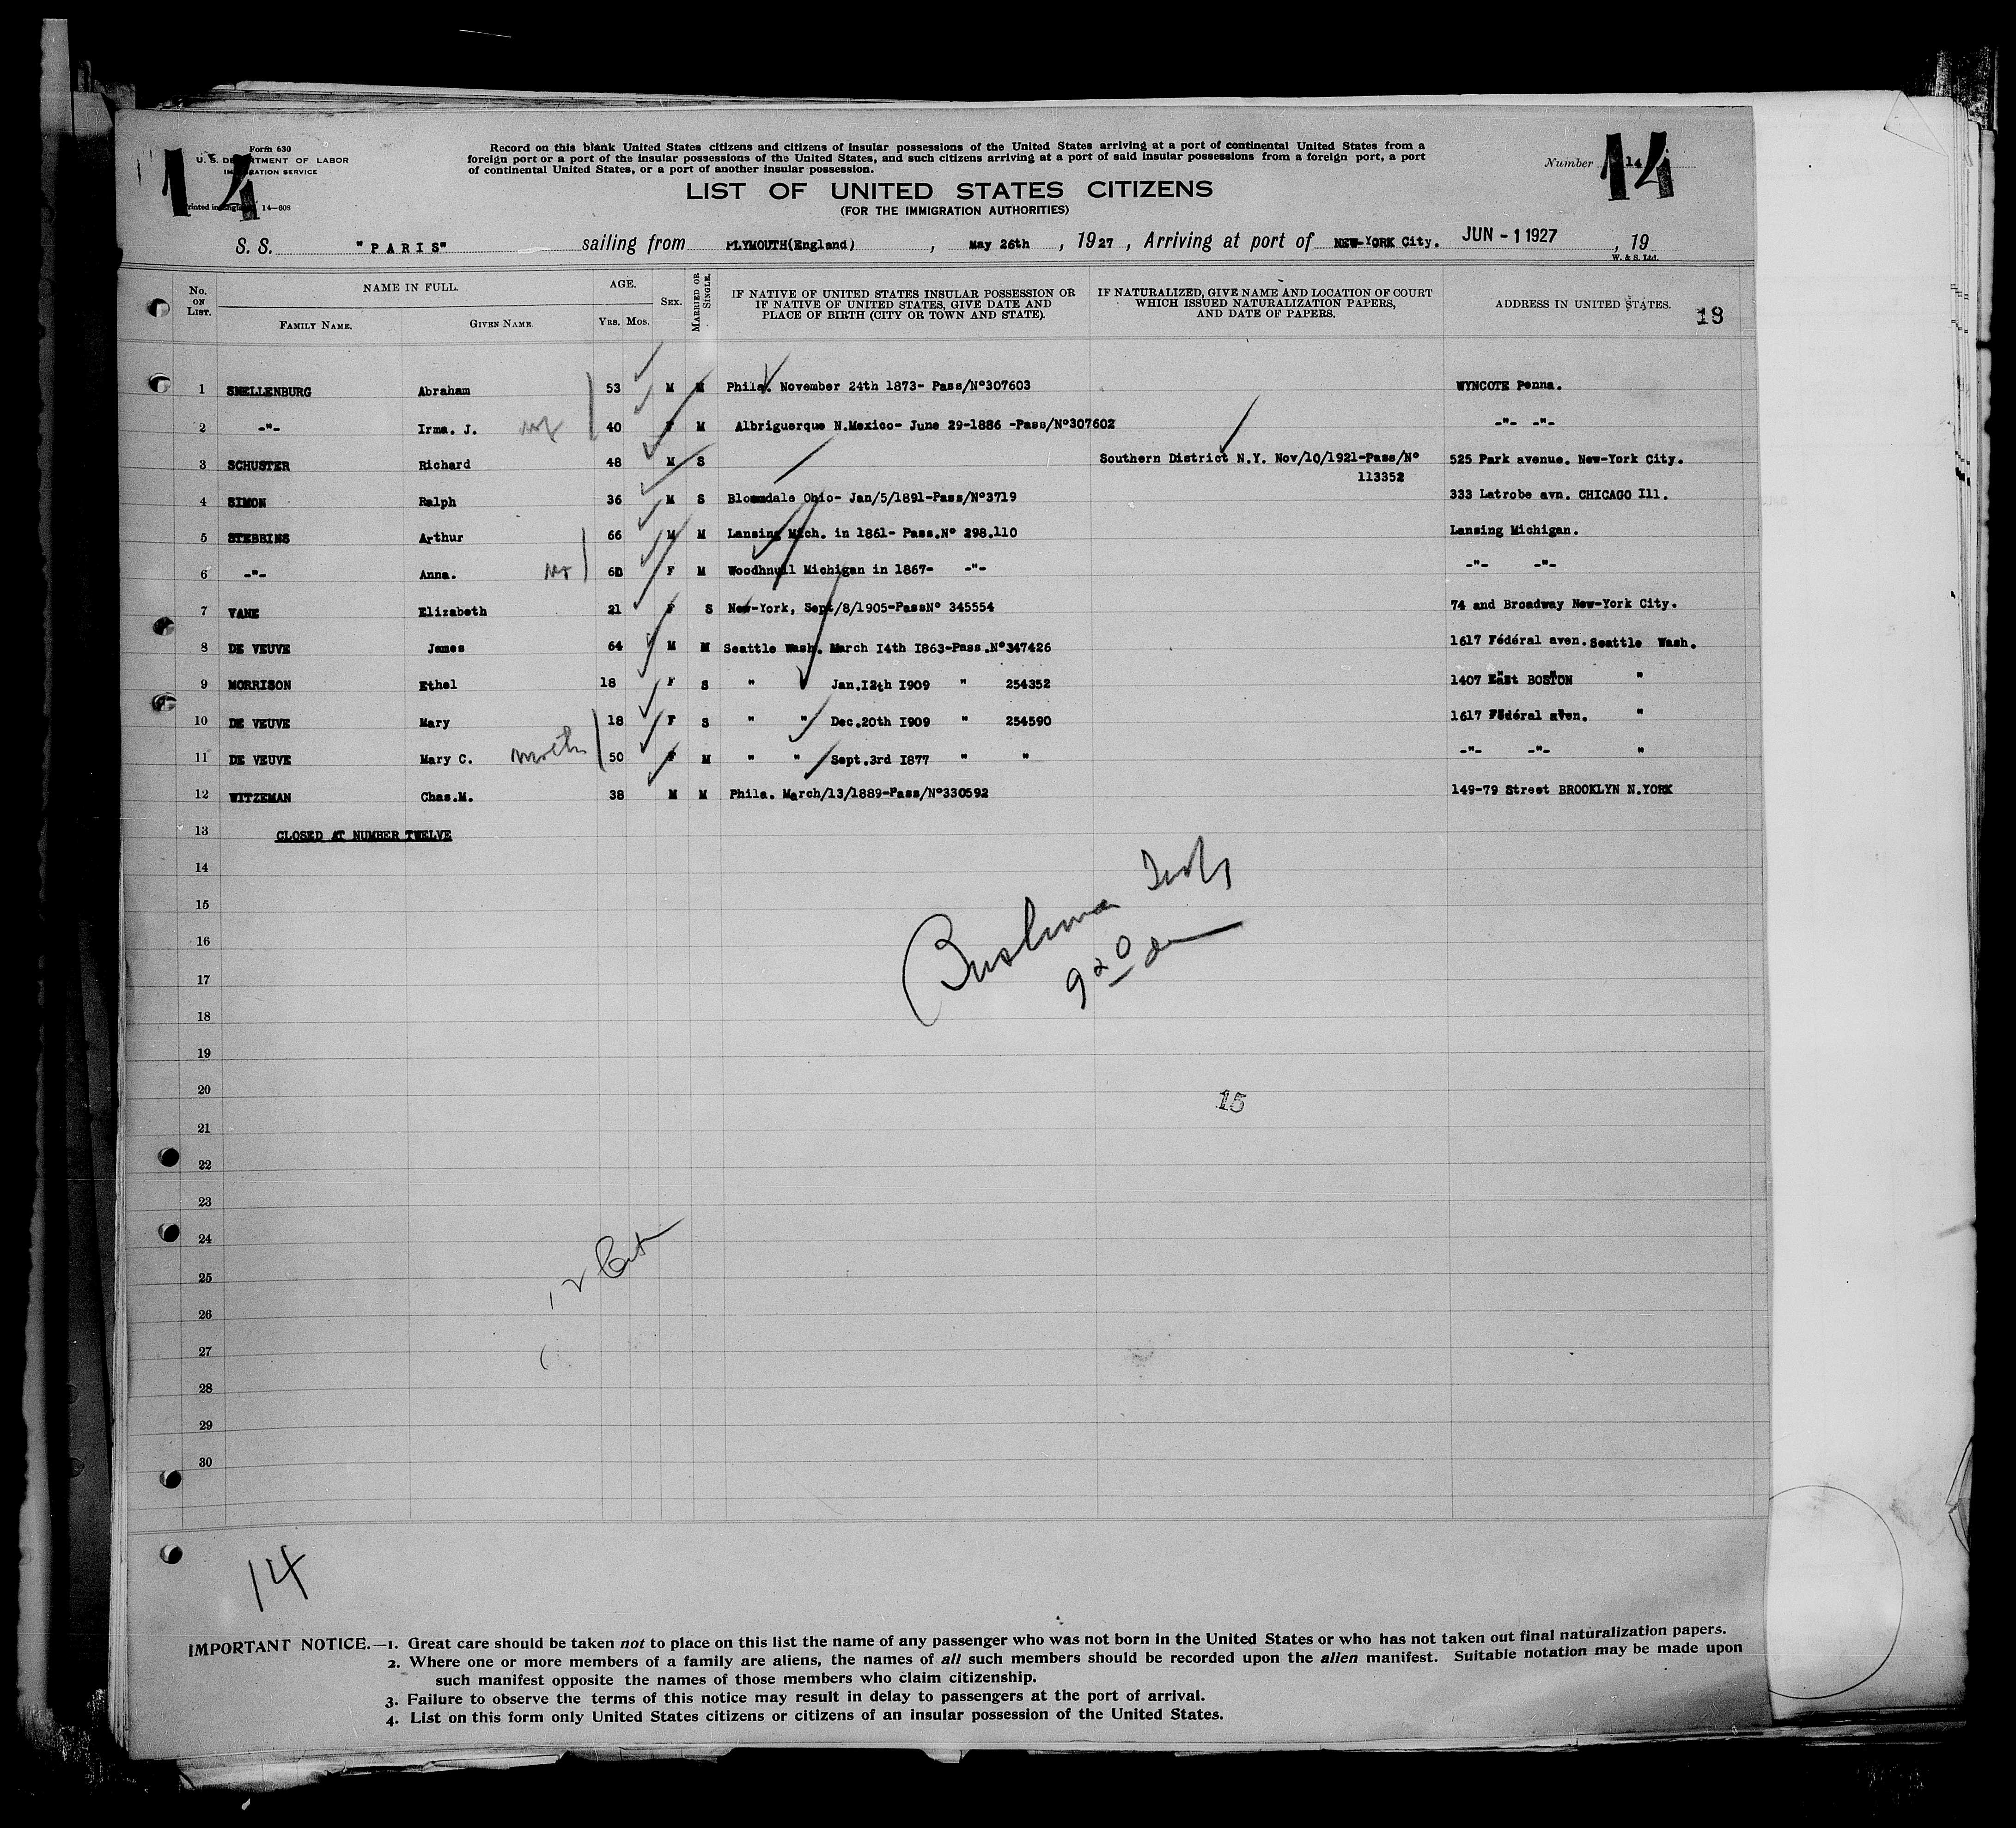 Form 630
U. S. DEPARTMENT OF LABOR
IMMIGRATION SERVICE
Printed in England 14—608
14
Record on this blank United States citizens and citizens of insular possessions of the United States arriving at a port of continental United States from a
foreign port or a port of the insular possessions of the United States, and such citizens arriving at a port of said insular possessions from a foreign port, a port
of continental United States, or a port of another insular possession.
Number 14
14
LIST OF UNITED STATES CITIZENS
(FOR THE IMMIGRATION AUTHORITIES)
S. S. "PARIS" sailing from PLYMOUTH(England), May 26th, 1927, Arriving at port of NEW-YORK City. JUN - 1 1927, 19
W. & S. Ltd.
No. ON LIST. NAME IN FULL. FAMILY NAME. GIVEN NAME. AGE. YRS. MOS. SEX. MARRIED OR SINGLE. IF NATIVE OF UNITED STATES INSULAR POSSESSION OR IF NATIVE OF UNITED STATES, GIVE DATE AND PLACE OF BIRTH (CITY OR TOWN AND STATE). IF NATURALIZED, GIVE NAME AND LOCATION OF COURT WHICH ISSUED NATURALIZATION PAPERS, AND DATE OF PAPERS. ADDRESS IN UNITED STATES. 18
1 SNELLENBURG Abraham 53 M M Phila. November 24th 1873- Pass/N°307603 WYNCOTE Penna.
2 -"- Irma. J. 40 F M Albriguerque N.Mexico- June 29-1886 -Pass/N°307602 -"- -"-
3 SCHUSTER Richard 48 M S Southern District N.Y. Nov/10/1921-Pass/N° 525 Park avenue. New-York City.
113352
4 SIMON Ralph 36 M S Bloomdale Ohio- Jan/5/1891-Pass/N°3719 333 Latrobe avn. CHICAGO Ill.
5 STEBBINS Arthur 66 M M Lansing Mich. in 1861- Pass.N° 298.110 Lansing Michigan.
6 -"- Anna. 60 F M Woodhnull Michigan in 1867- -"- -"- -"-
7 VANE Elizabeth 21 F S New-York, Sept/8/1905-PassN° 345554 74 and Broadway New-York City.
8 DE VEUVE James 64 M M Seattle Wash. March 14th 1863-Pass.N°347426 1617 Fédéral aven. Seattle Wash.
9 MORRISON Ethel 18 F S " " Jan.12th 1909 " 254352 1407 East BOSTON " "
10 DE VEUVE Mary 18 F S " " Dec.20th 1909 " 254590 1617 Fédéral aven. "
11 DE VEUVE Mary C. 50 F M " " Sept.3rd 1877 " " -"- -"- "
12 WITZEMAN Chas.M. 38 M M Phila. March/13/1889-Pass/N°330592 149-79 Street BROOKLYN N.YORK
13 CLOSED AT NUMBER TWELVE
14
15
16
17
18
19
20
15
21
22
23
24
25
26
27
28
29
30
14
IMPORTANT NOTICE.—1. Great care should be taken not to place on this list the name of any passenger who was not born in the United States or who has not taken out final naturalization papers.
2. Where one or more members of a family are aliens, the names of all such members should be recorded upon the alien manifest. Suitable notation may be made upon
such manifest opposite the names of those members who claim citizenship.
3. Failure to observe the terms of this notice may result in delay to passengers at the port of arrival.
4. List on this form only United States citizens or citizens of an insular possession of the United States.